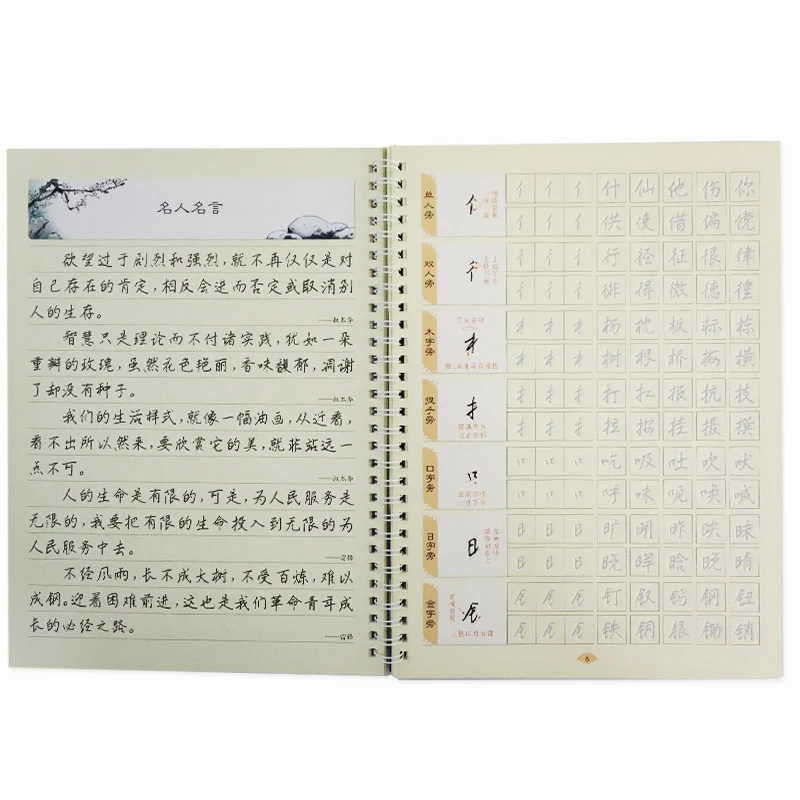 名人名言
欲望过于剧烈和强烈,就不再仅仅是对
自己存在的肯定,相反会进而否定或取消别
人的生存。
——叔本华
智慧只是理论而不付诸实践,犹如一朵
重瓣的玫瑰,虽然花色艳丽,香味馥郁,凋谢
了却没有种子。
——叔本华
我们的生活样式,就像一幅油画,从近看,
看不出所以然来,要欣赏它的美,就非站远一
点不可。
——叔本华
人的生命是有限的,可是,为人民服务是
无限的,我要把有限的生命投入到无限的为
人民服务中去。
——雷锋
不经风雨,长不成大树,不受百炼,难以
成钢。迎着困难前进,这也是我们革命青年成
长的必经之路。
——雷锋
单人旁
亻 亻 亻 亻 什 仙 他 伤 你
亻 亻 亻 供 使 借 偏 傥
双人旁
彳 彳 彳 彳 行 径 征 很 律
彳 彳 彳 徘 得 微 德 徨
木字旁
木 木 木 木 杨 枕 板 标 栋
木 木 木 树 根 桥 梅 横
提手旁
扌 扌 扌 扌 打 扛 报 抗 技
扌 扌 扌 拉 挂 摄 撰
口字旁
口 口 口 口 吃 吸 吐 吹 吠
口 口 口 呼 味 呢 唤 喊
日字旁
日 日 日 日 旷 明 昨 映 昧
日 日 日 晓 晖 晗 晚 晴
金字旁
钅 钅 钅 钅 钉 钗 钙 钢 钮
钅 钅 钅 铁 铜 银 锄 销
6